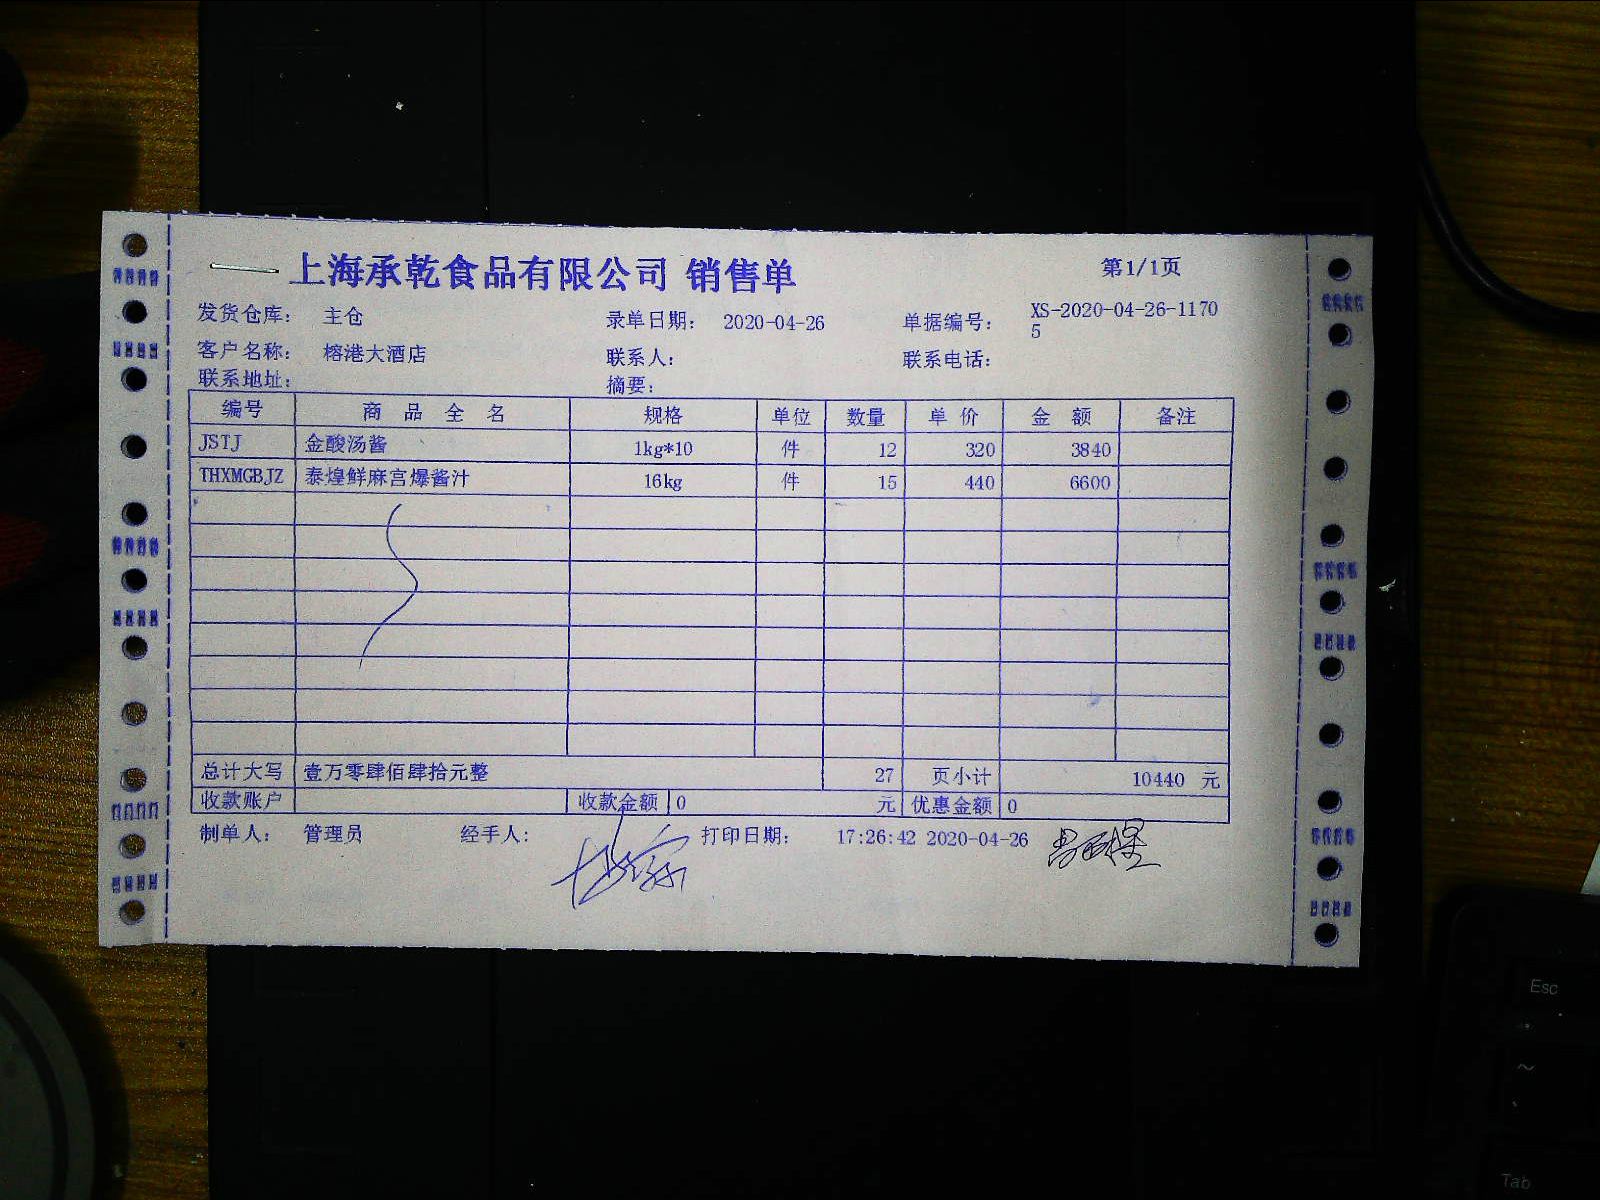 上海承乾食品有限公司 销售单 第1/1页
发货仓库： 主仓 录单日期： 2020-04-26 单据编号： XS-2020-04-26-1170
5
客户名称： 榕港大酒店 联系人： 联系电话：
联系地址： 摘要：
编号 商品全名 规格 单位 数量 单价 金额 备注
JSTJ 金酸汤酱 1kg*10 件 12 320 3840
THXMGBJZ 泰煌鲜麻宫爆酱汁 16kg 件 15 440 6600
总计大写 壹万零肆佰肆拾元整 27 页小计 10440 元
收款账户 收款金额 0 元 优惠金额 0
制单人： 管理员 经手人： 打印日期： 17:26:42 2020-04-26
Esc
~
Tab